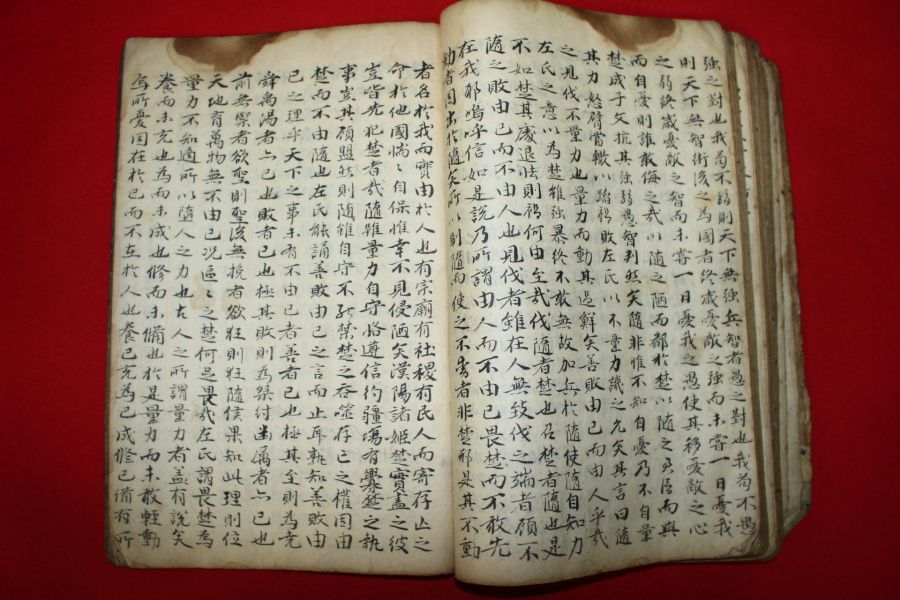 強之對也我苟不弱則天下無強兵智者愚之對也我苟不愚
則天下無智術後之為國者終歲憂敵之強而未嘗一日憂我
之弱終歲憂敵之智而未嘗一日憂我之愚使其移憂敵之心
而自憂則誰敢侮之哉以隨之陋而鄰於楚以隨之君臣而與
楚成子文抗其強弱愚智判然矣隨非惟不知自憂乃不自量
其力怒臂當轍以蹈禍敗左氏以不量力譏之允矣其言曰隨
之見伐不量力也量力而動其過鮮矣善敗由己而由人乎哉
左氏之意以為楚雖強暴終不敢無故加兵於隨使隨自知力
不如楚甚處退法則禍何由至哉伐隨者楚也召楚者隨也是
隨之敗由己而不由人也見伐者雖在人無致伐之端者顧不
在我邪嗚呼信如是說乃所謂由人而不由己畏楚而不敢先
動者固出於隨矣所以制隨而使之不動者非楚邪是其不動
者名於我而實由於人也有宗廟有社稷有民人而寄存亡之
命於他國惴々自保惟幸不見侵陋矣漢陽諸姬楚實盡之彼
豈皆先犯楚者哉隨雖量力自守恪遵信約疆場有釁楚之執
事豈其顧盟然則隨雖自守不能禁楚之吞噬存亡之權固由
楚而不由隨也左氏能誦善敗由己之言而止耳孰知善敗由
己之理乎天下之事未有不由己者善者己也極其至則為堯
舜禹湯者亦己也敗者己也極其敗則為桀紂幽厲者亦己也
前無禦者欲聖則聖後無挽者欲狂則狂隨侯果知此理則位
天地育萬物無不由己況區々之楚何足畏哉左氏謂畏楚為
量力不知適所以隳人之力也古人之所謂量力者盖有說矣
養而未充也為而未成也修而未備也於是量力而未敢輕動
焉所憂固在於己而不在於人也養已充為已成修已備有所